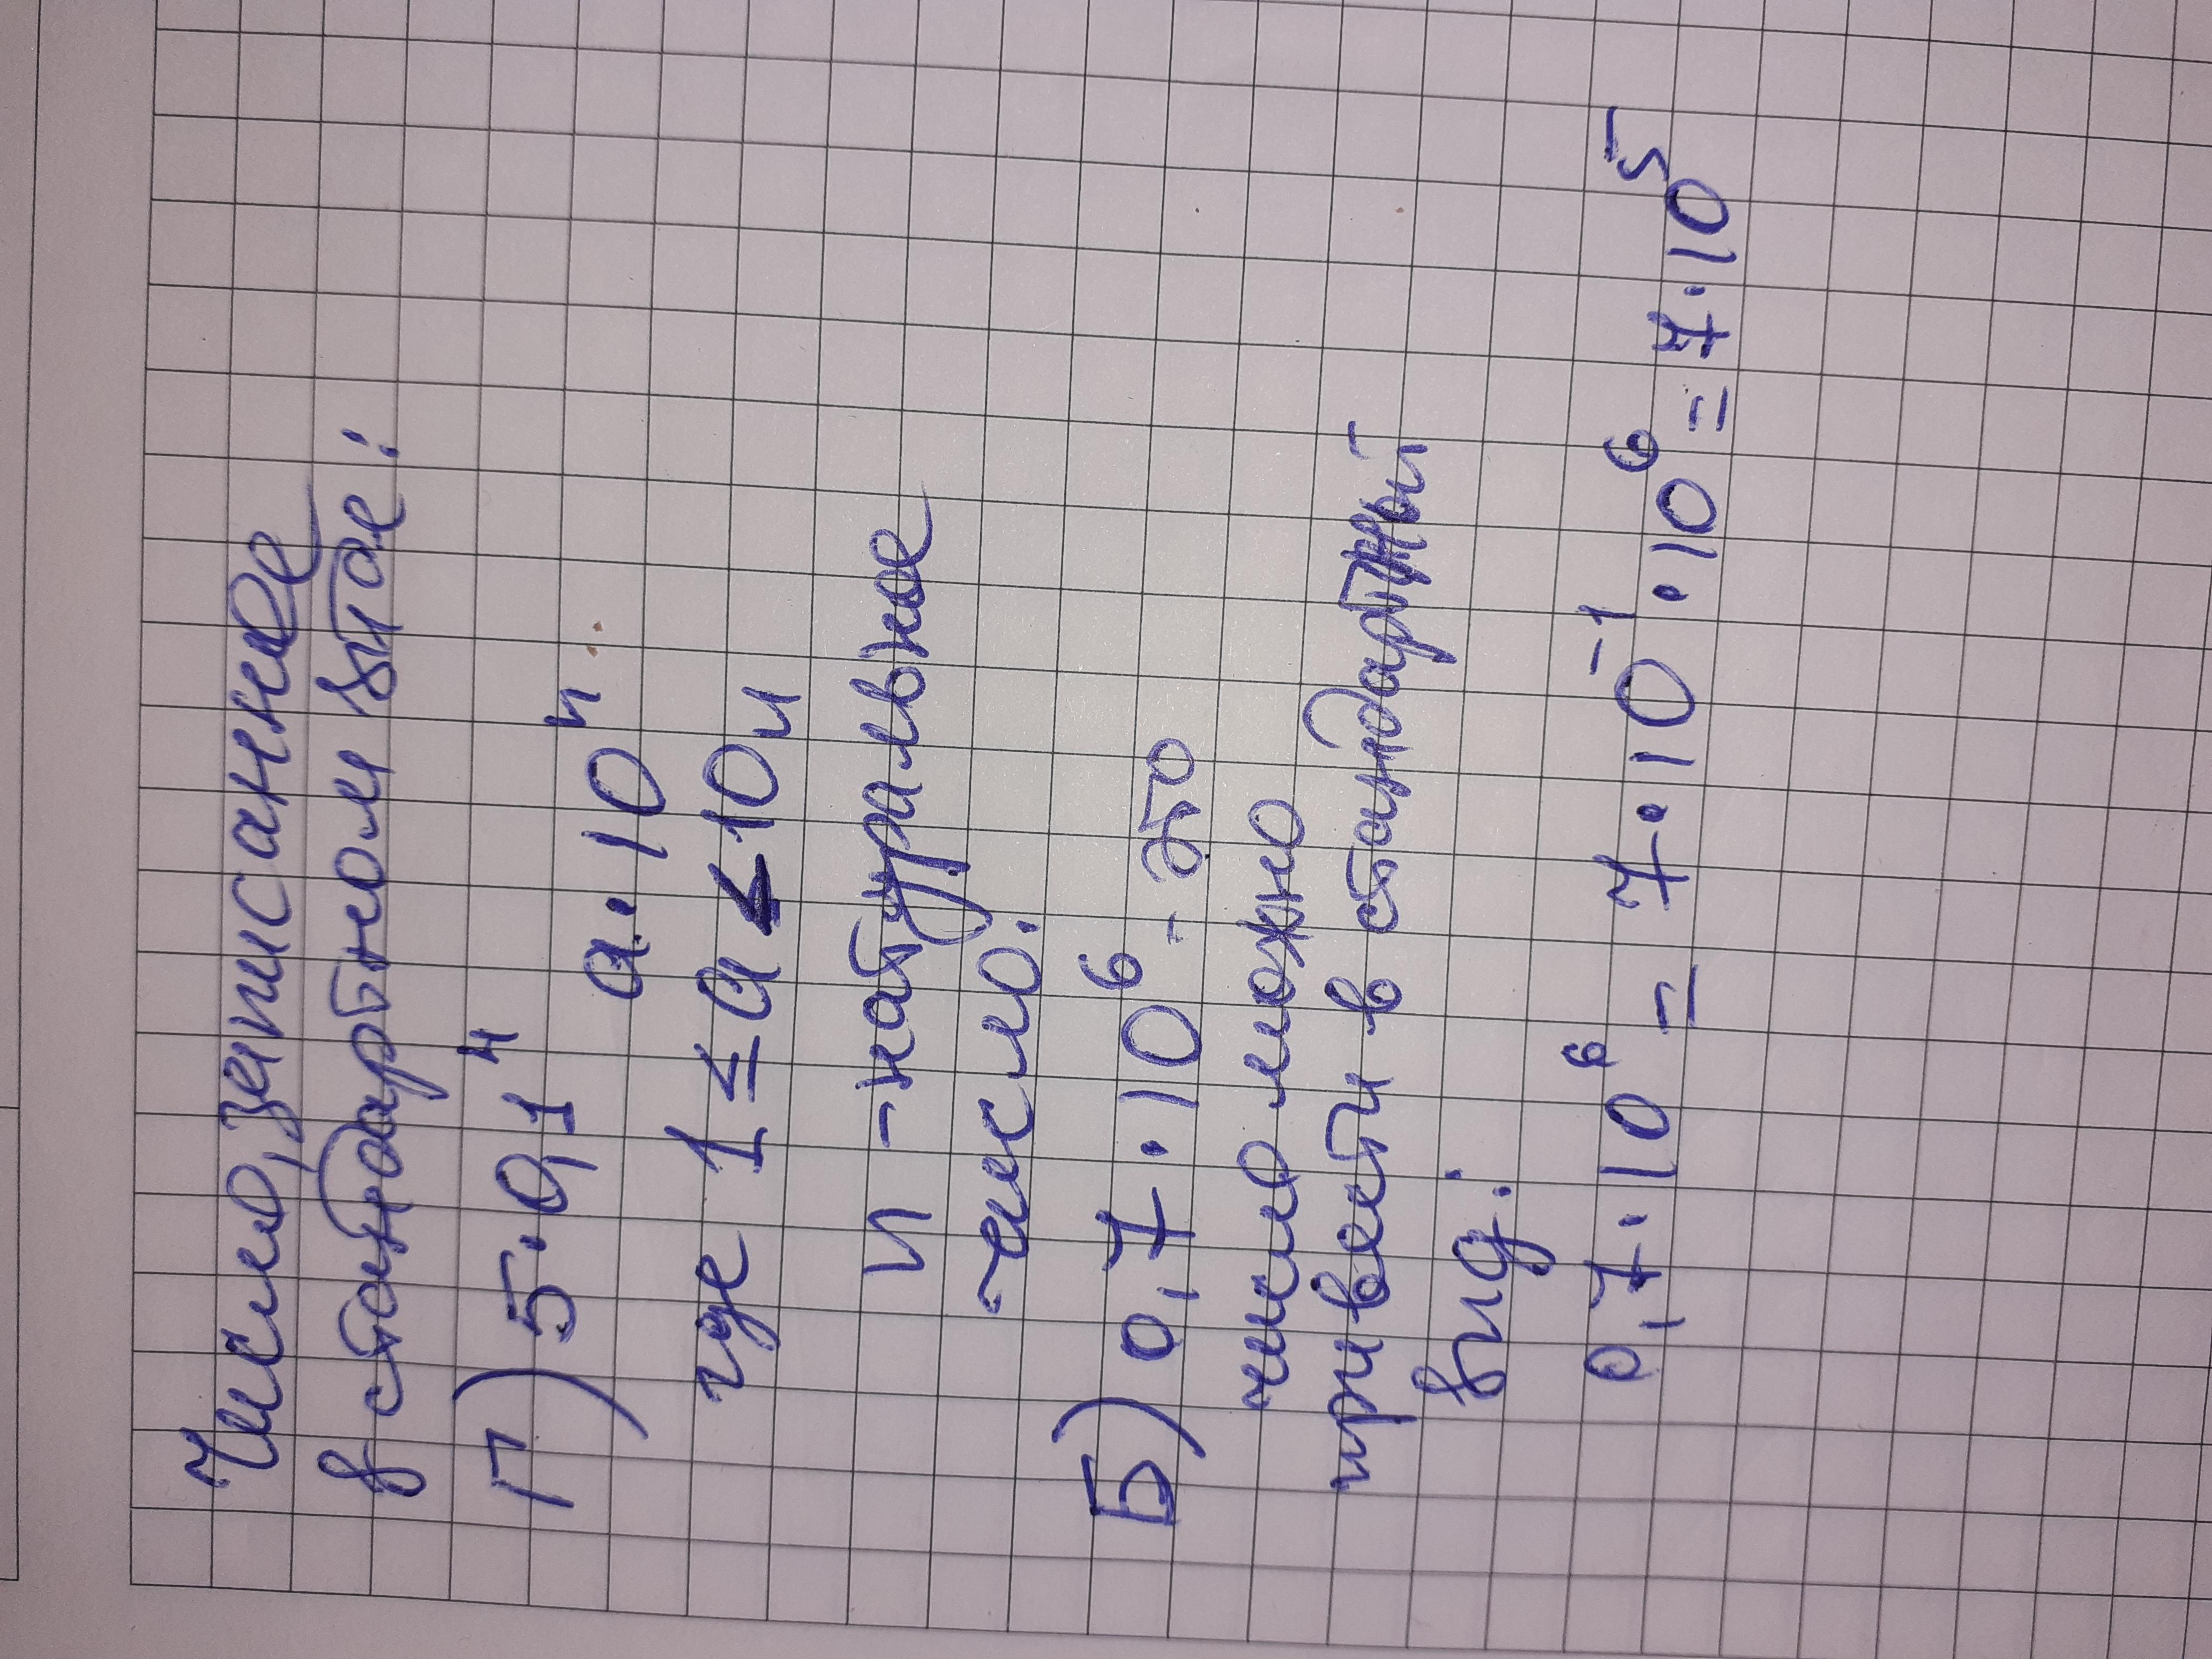 Число, записанное
в стандартном виде:
Г) 5·0,1⁴
a·10ⁿ
где 1 ≤ a < 10 и
n - натуральное
число.
Б) 0,7·10⁶ - это
число можно
привести в стандартный
вид:
0,7·10⁶ = 7·10⁻¹·10⁶ = 7·10⁵